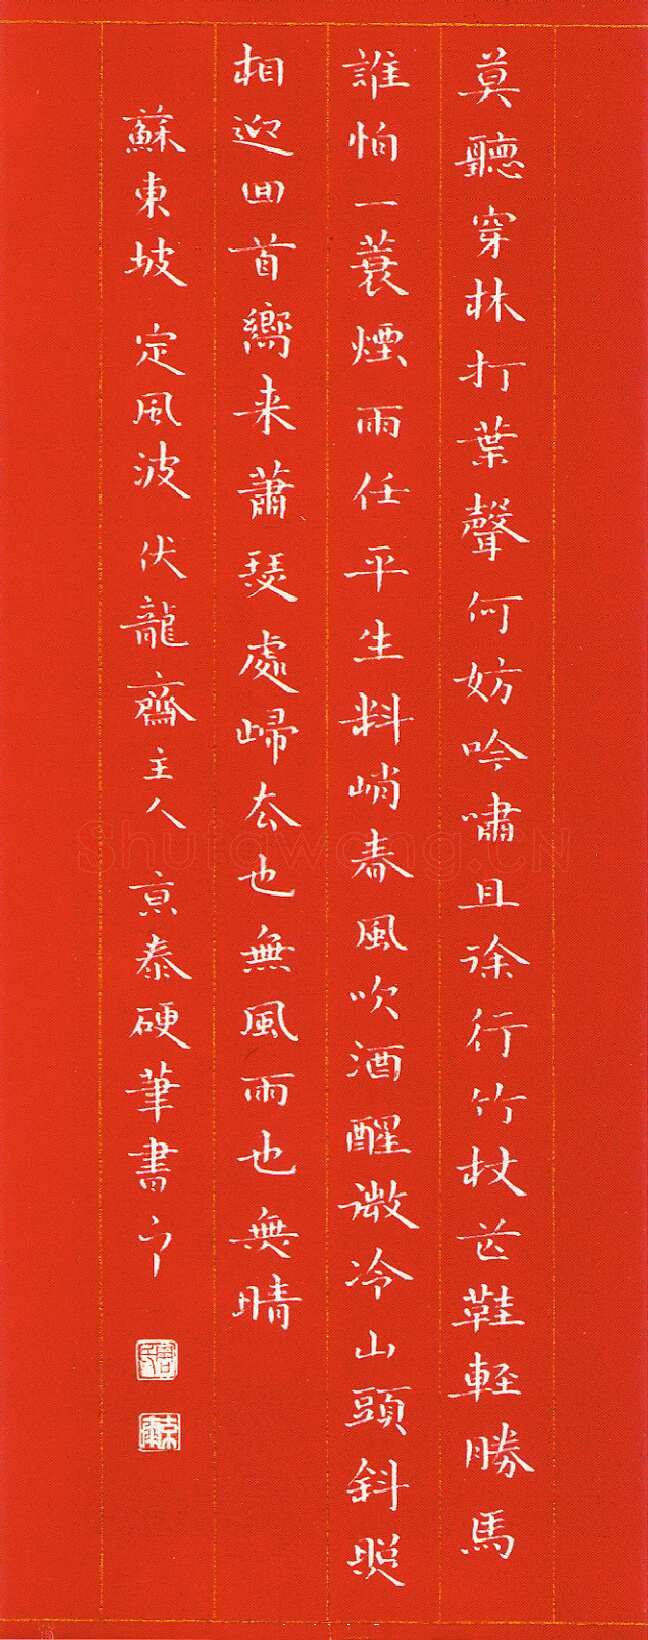 莫聽穿林打葉聲何妨吟嘯且徐行竹杖芒鞋輕勝馬
誰怕一蓑煙雨任平生料峭春風吹酒醒微冷山頭斜照
相迎回首嚮来蕭瑟處歸去也無風雨也無晴
蘇東坡 定風波 伏龍齋主人 京泰硬筆書
Shufawang.CN